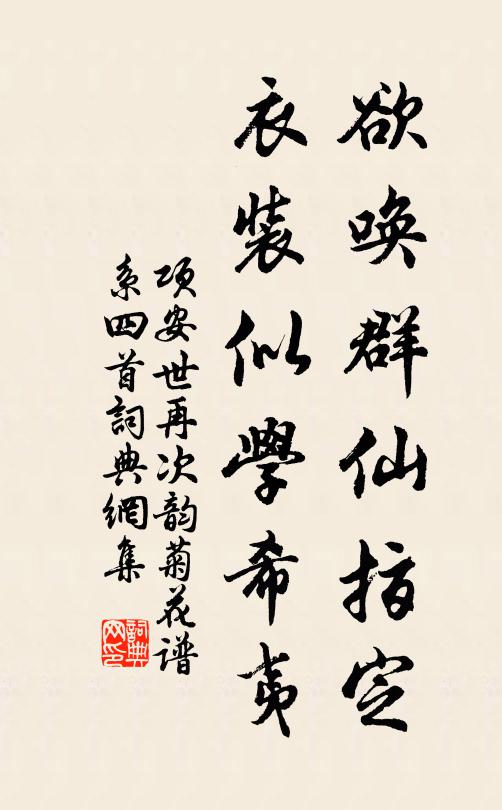 欲唤群仙指定
衣裝似學希夷
项安世再次韵菊花谱
系四首詞典網集
詞典网印